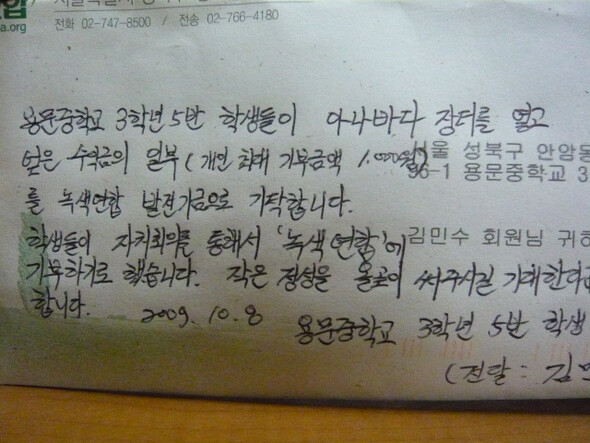 a.org
전화 02-747-8500 / 전송 02-766-4180
용문중학교 3학년 5반 학생들이 아나바다 장터를 열고
얻은 수익금의 일부 (개인 최대 기부금액 1,000원)
서울 성북구 안암동
96-1 용문중학교 3
를 녹색연합 발전기금으로 기탁합니다.
학생들이 자치회의를 통해서 '녹색연합'에
김민수 회원님 귀하
기부하기로 했습니다. 작은 정성을 올곧이 써주시길 기대한다고
합니다. 2009. 10. 8
용문중학교 3학년 5반 학생
(전달 : 김